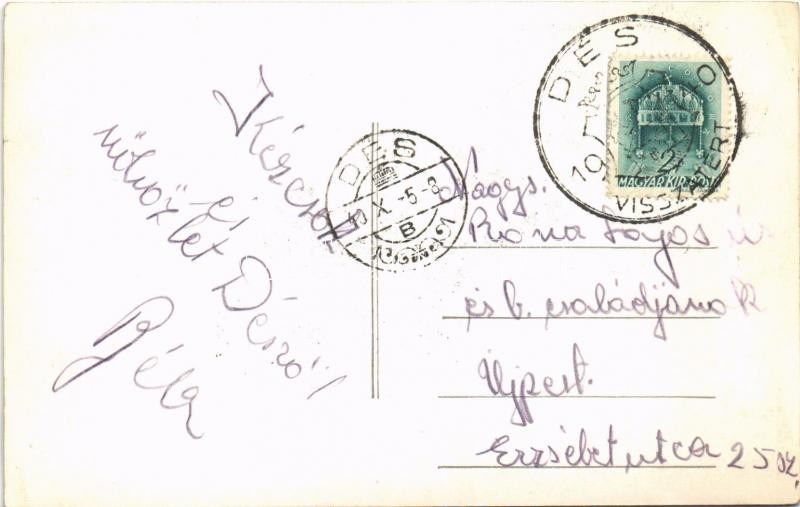 Kézcsók
és
üdvözlet Désről
Béla
DÉS
X. -5. 8
B
DÉS
19
VISSZATÉRT
MAGYAR KIR. POSTA
Nagys.
Rona Lajos úr
és b. családjának
Ujpest.
Erzsébet utca 25 sz.